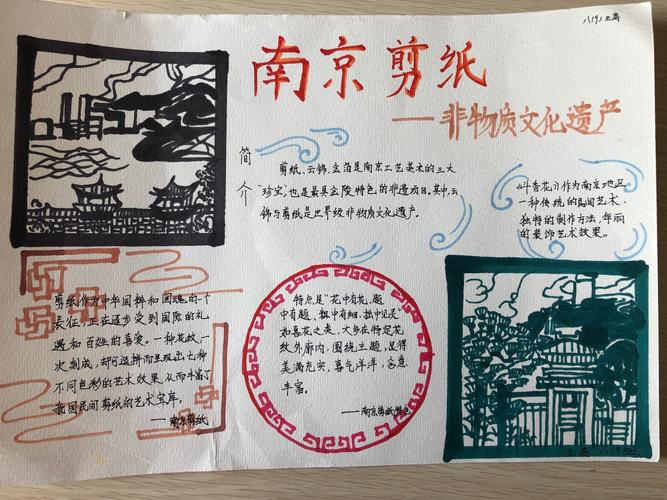 八(9) 王
南京剪纸
——非物质文化遗产
简介
剪纸、云锦、金箔是南京工艺美术的三大
“珍宝”,也是最具金陵特色的非遗项目。其中,云
锦与剪纸是世界级非物质文化遗产。
《斗香花》作为南京地区
一种传统的民间艺术,
独特的制作方法,年丽
的装饰艺术效果。
剪纸作为中国国粹和国魂的一个
表征,正在逐步受到国际的礼
遇和百姓的喜爱。一种花纹一
次刻成,却可选拼而呈现出七种
不同色彩的艺术效果,从而丰富了
我国民间剪纸的艺术宝库。
——南京剪纸
特点是“花中有花,题
中有题、粗中有细、拙中见灵”
如喜花之类,大多在特定花
纹外廓内,围绕主题,显得
美满充实,喜气洋洋,寓意
丰富。
——南京剪纸
王 八(9)班